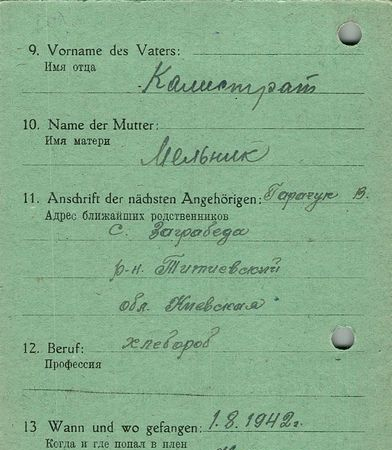 9. Vorname des Vaters:
Имя отца
Калистрат
10. Name der Mutter:
Имя матери
Мельник
11. Anschrift der nächsten Angehörigen: Гарачук В.
Адрес ближайших родственников
с. Заграбеда
р-н. Титиевский
обл. Киевская
12. Beruf: хлебороб
Профессия
13 Wann und wo gefangen: 1.8.1942г.
Когда и где попал в плен